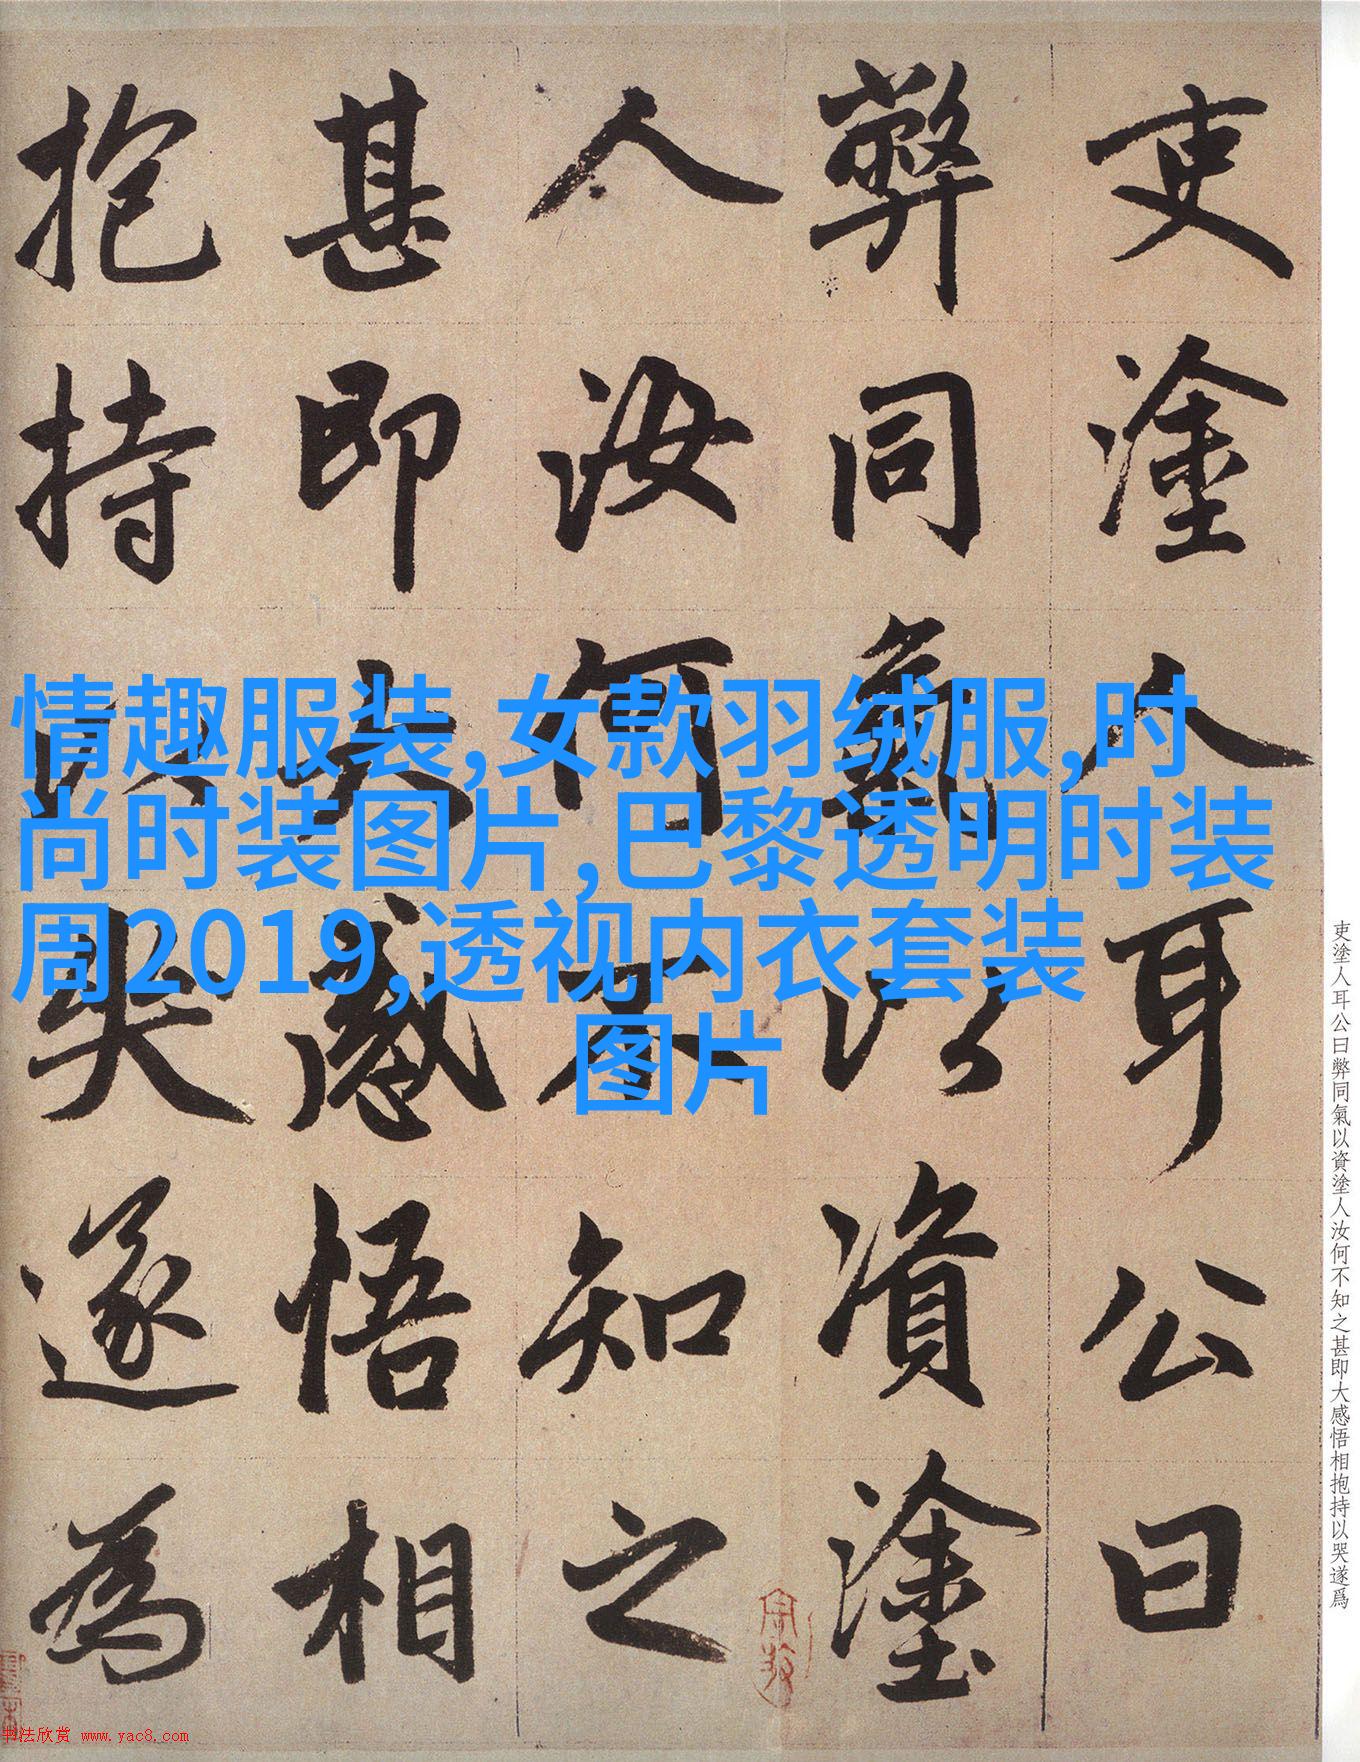 情趣服装,女款羽绒服,时
尚时装图片,巴黎透明时装
周2019,透视内衣套装
图片
吏塗人耳公曰
弊同氣以資塗
人汝何不知之
甚即大感悟相
抱持以哭遂為
吏塗人耳公曰弊同氣以資塗人汝何不知之甚即大感悟相抱持以哭遂爲
书法欣赏 www.yac8.com